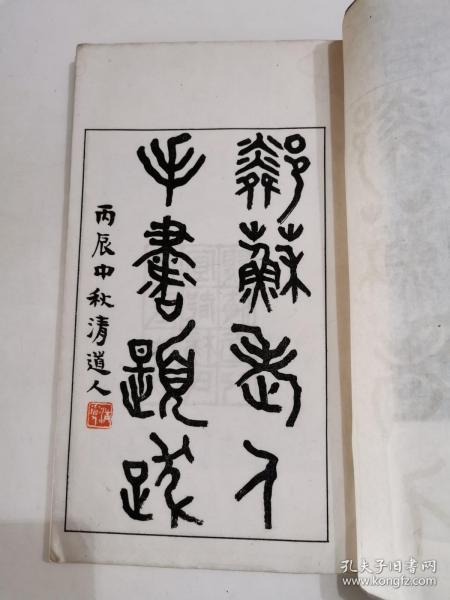 鄰蘇老人
手書題跋
丙辰中秋清道人
孔夫子旧书网
www.kongfz.com